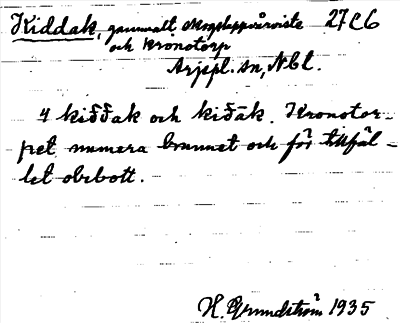 Kiddak, gammalt skogslappviste 27C6
och kronotorp
Arjepl. sn, Nbl.
4 kiδδak och kiδāk. Kronotor-
pet numera brunnet och för tillfäl-
let obebott.
H. Grundström 1935